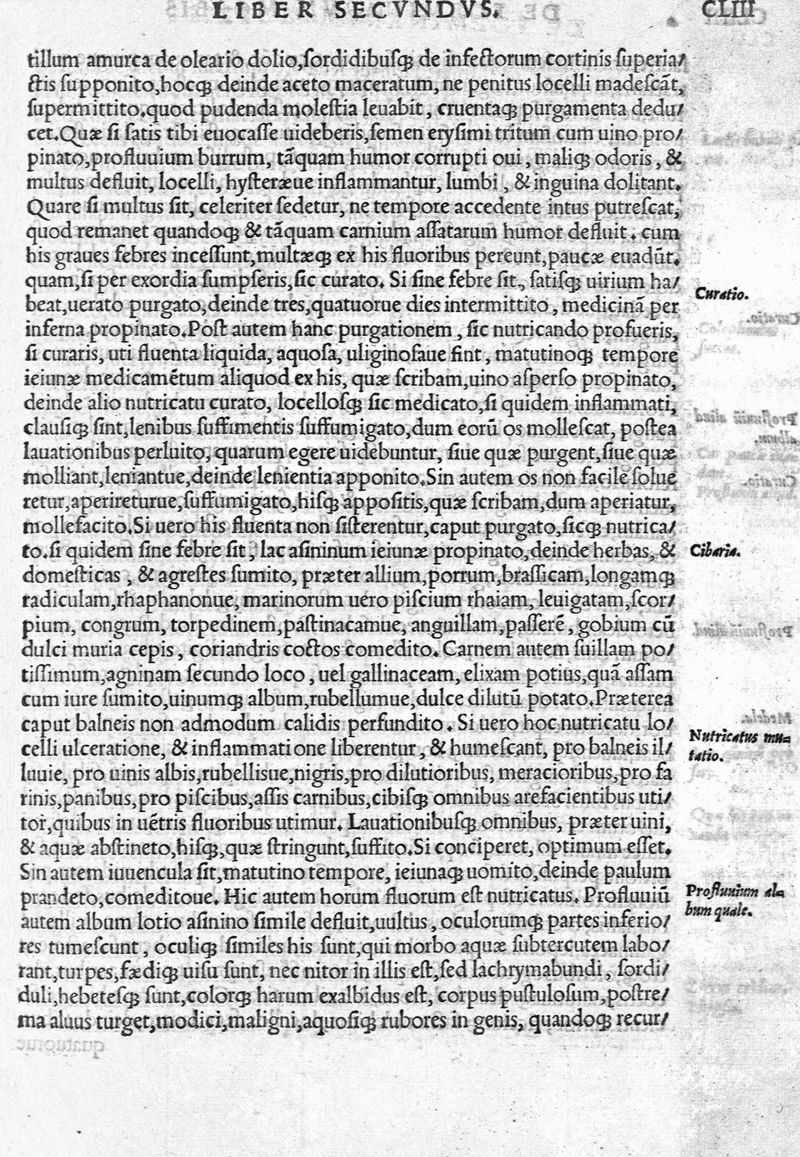 LIBER SECVNDVS. CLIII
tillum amurca de oleario dolio,ſordidibuſqꝫ de infectorum cortinis ſuperia/
ctis ſupponito,hocqꝫ deinde aceto maceratum, ne penitus locelli madeſcãt,
ſupermittito.quod pudenda moleſtia leuabit, cruentaqꝫ purgamenta dedu/
cet.Quæ ſi ſatis tibi euocaſſe uideberis,ſemen eryſimi tritum cum uino pro/
pinato,profluuium burrum, tãquam humor corrupti oui, maliqꝫ odoris, &
multus defluit, locelli, hyſteræue inflammantur, lumbi, & inguina dolitant.
Quare ſi multus ſit, celeriter ſedetur, ne tempore accedente intus putreſcat,
quod remanet quandoqꝫ & tãquam carnium aſſatarum humor defluit. cum
his graues febres inceſſunt,multæqꝫ ex his fluoribus pereunt,paucæ euadũt.
quam,ſi per exordia ſumpſeris,ſic curato. Si ſine febre ſit, ſatiſqꝫ uirium ha/
Curatio.
beat,uerato purgato,deinde tres,quatuorue dies intermittito, medicinã per
inferna propinato.Poſt autem hanc purgationem, ſic nutricando profueris,
ſi curaris, uti fluenta liquida, aquoſa, uliginoſaue ſint, matutinoqꝫ tempore
ieiunæ medicamẽtum aliquod ex his, quæ ſcribam,uino aſperſo propinato,
deinde alio nutricatu curato, locelloſqꝫ ſic medicato,ſi quidem inflammati,
clauſiqꝫ ſint,lenibus ſuffimentis ſuffumigato,dum eorũ os molleſcat, poſtea
lauationibus perluito, quarum egere uidebuntur, ſiue quæ purgent,ſiue quæ
molliant,leniantue,deinde lenientia apponito.Sin autem os non facile ſolue
retur,aperireturue,ſuffumigato,hiſqꝫ appoſitis,quæ ſcribam,dum aperiatur,
mollefacito.Si uero his fluenta non ſiſterentur,caput purgato,ſicqꝫ nutrica/
to.ſi quidem ſine febre ſit, lac aſininum ieiunæ propinato,deinde herbas, &
Cibaria.
domeſticas, & agreſtes ſumito, præter allium,porrum,braſſicam,longamqꝫ
radiculam,rhaphanonue, marinorum uero piſcium rhaiam, leuigatam,ſcor/
pium, congrum, torpedinem,paſtinacamue, anguillam,paſſerẽ, gobium cũ
dulci muria cepis, coriandris coctos comedito. Carnem autem ſuillam po/
tiſſimum,agninam ſecundo loco, uel gallinaceam, elixam potius,quã aſſam
cum iure ſumito,uinumqꝫ album,rubellumue,dulce dilutũ potato.Præterea
caput balneis non admodum calidis perfundito. Si uero hoc nutricatu lo/
celli ulceratione, & inflammatione liberentur, & humeſcant, pro balneis il/
Nutricatus mu-
tatio.
luuie, pro uinis albis,rubelliſue,nigris,pro dilutioribus, meracioribus,pro fa
rinis,panibus,pro piſcibus,aſſis carnibus,cibiſqꝫ omnibus arefacientibus uti/
tor,quibus in uẽtris fluoribus utimur. Lauationibuſqꝫ omnibus, præter uini,
& aquæ abſtineto,hiſqꝫ,quæ ſtringunt,ſuffito.Si conciperet, optimum eſſet.
Sin autem iuuencula ſit,matutino tempore, ieiunaqꝫ uomito,deinde paulum
prandeto,comeditoue. Hic autem horum fluorum eſt nutricatus. Profluuiũ
Profluuium al-
bum quale.
autem album lotio aſinino ſimile defluit,uultus, oculorumqꝫ partes inferio/
res tumeſcunt, oculiqꝫ ſimiles his ſunt,qui morbo aquæ ſubtercutem labo/
rant,turpes,fædiqꝫ uiſu ſunt, nec nitor in illis eſt,ſed lachrymabundi, ſordi/
duli,hebeteſqꝫ ſunt,colorqꝫ harum exalbidus eſt, corpus puſtuloſum,poſtre/
ma aluus turget,modici,maligni,aquoſiqꝫ rubores in genis, quandoqꝫ recur/